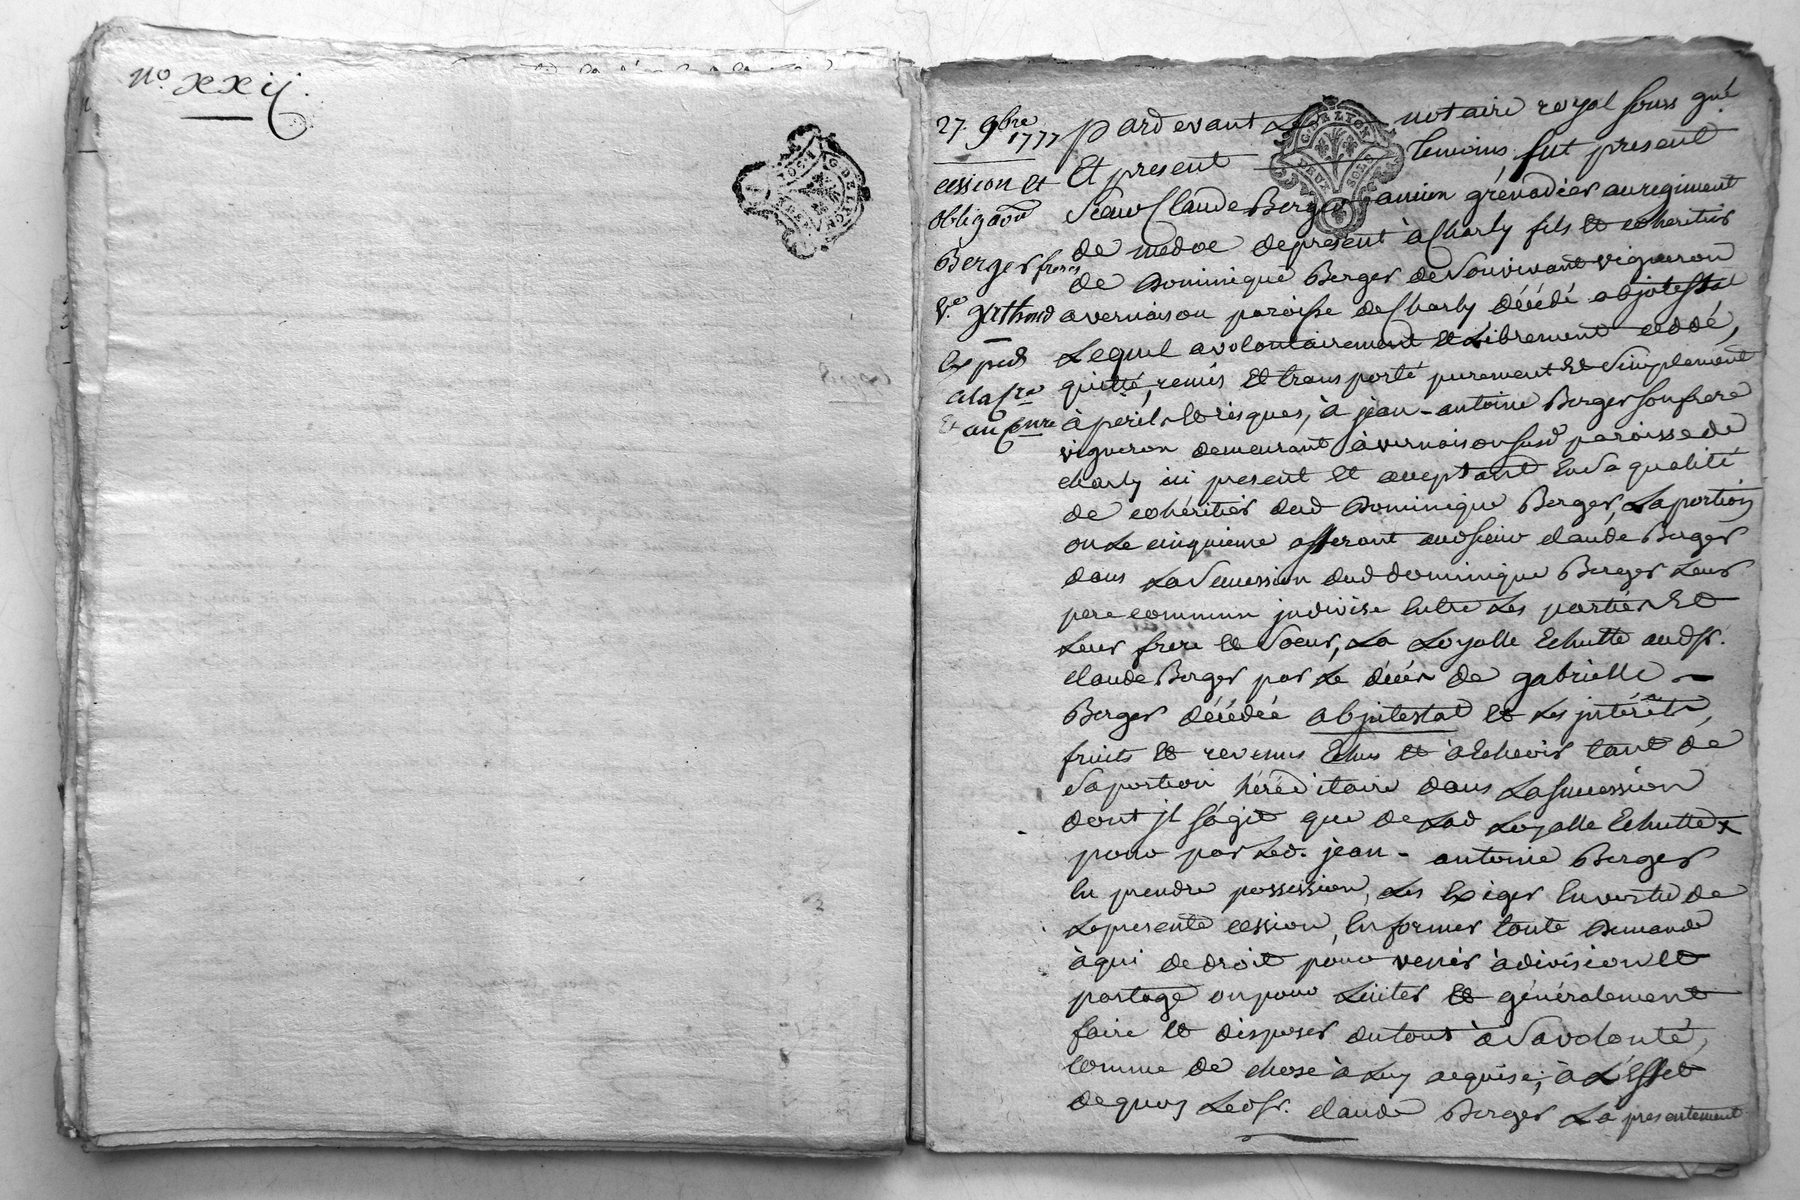 N.o xxij.
27. 9bre 1777
cession et
obligaon
Berger freres
V.e gathoud
Exped
a la fre
Et au Cenre
Pardevant Le notaire royal sous gné
Et present temoins fut present
Sieur Claude Berger ancien grénadier au regiment
de medoc de present à Charly fils et coheritier
de Dominique Berger de son vivant vigneron
a vernaison paroisse de Charly décédé abjntestat
Lequel a volontairement et Librement ceddé,
quitté, remis et transporté purement et simplement
à périls et risques, à jean-antoine Berger son frere
vigneron demeurant à vernaison susd paroisse de
charly ici present et acceptant en sa qualité
de cohéritier dud Dominique Berger, La portion
ou Le cinquieme afferant aud sieur claude Berger
dans La Succession dud dominique Berger Leur
pere commun jndivise entre Les parties et
Leur frere et Soeur, La Loyalle Echutte aud sr.
claude Berger par Le décés de gabrielle
Berger décédée abjntestat et Les jntérêts,
fruits et revenus Echus et à Echeoir tant de
Sa portion héréditaire dans La Succession
dont jl s'agit que de Lad Loyalle Echutte x
pour par Led. jean-antoine Berger
en prendre possession, Les Exiger en vertu de
La presente cession, en former toute demande
à qui de droit pour venir à division et
partage ou pour Liciter et généralement
faire et disposer du tout à Sa volonté,
comme de chose à Luy acquise; à L'Effet
de quoy Led sr. claude Berger La presentement
G. DE LYON
DEUX SOLS
G. DE LYON